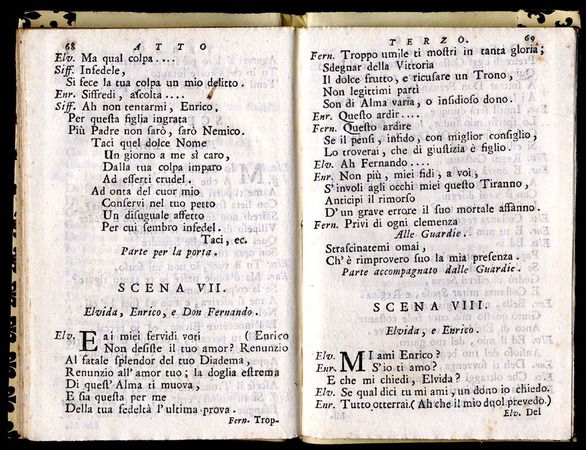 68 ATTO
Elv. Ma qual colpa....
Siff. Infedele,
Sì fece la tua colpa un mio delitto.
Enr. Siffredi, ascolta....
Siff. Ah non tentarmi, Enrico,
Per questa figlia ingrata
Più Padre non sarò, sarò Nemico.
Taci quel dolce Nome
Un giorno a me sì caro,
Dalla tua colpa imparo
Ad esserti crudel,
Ad onta del cuor mio
Conservi nel tuo petto
Un disuguale affetto
Per cui sembro infedel.
Taci, ec.
Parte per la porta.
SCENA VII.
Elvida, Enrico, e Don Fernando.
Elv. E ai miei fervidi voti (Enrico
Non desiste il tuo amor? Renunzio
Al fatale splendor del tuo Diadema,
Renunzio all'amor tuo; la doglia estrema
Di quest'Alma ti muova,
E sia questa per me
Della tua fedeltà l'ultima prova.
Fern. Trop-
TERZO. 69
Fern. Troppo umile ti mostri in tanta gloria;
Sdegnar della Vittoria
Il dolce frutto, e ricusare un Trono,
Non legittimi parti
Son di Alma varia, o insidioso dono.
Enr. Questo ardir....
Fern. Questo ardire
Se il pensi, infido, con miglior consiglio,
Lo troverai, che di giustizia è figlio.
Elv. Ah Fernando....
Enr. Non più, miei fidi, a voi,
S'involi agli occhi miei questo Tiranno,
Anticipi il rimorso
D'un grave errore il suo mortale affanno.
Fern. Privi di ogni clemenza
Alle Guardie.
Strascinatemi omai,
Ch'è rimprovero suo la mia presenza.
Parte accompagnato dalle Guardie.
SCENA VIII.
Elvida, e Enrico.
Elv. MI ami Enrico?
Enr. S'io ti amo?
E che mi chiedi, Elvida?
Elv. Se qual dici tu mi ami, un dono io chiedo.
Enr. Tutto otterrai. (Ah che il mio duol prevedo.)
Elv. Del